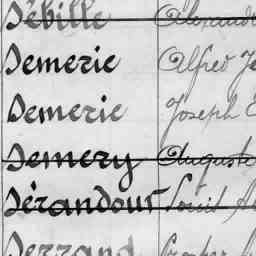 Débille Alexandr
Demerie Alfred Je
Demerie Joseph E
Demery Auguste
Dérandour Louis Al
Derrand Prosper